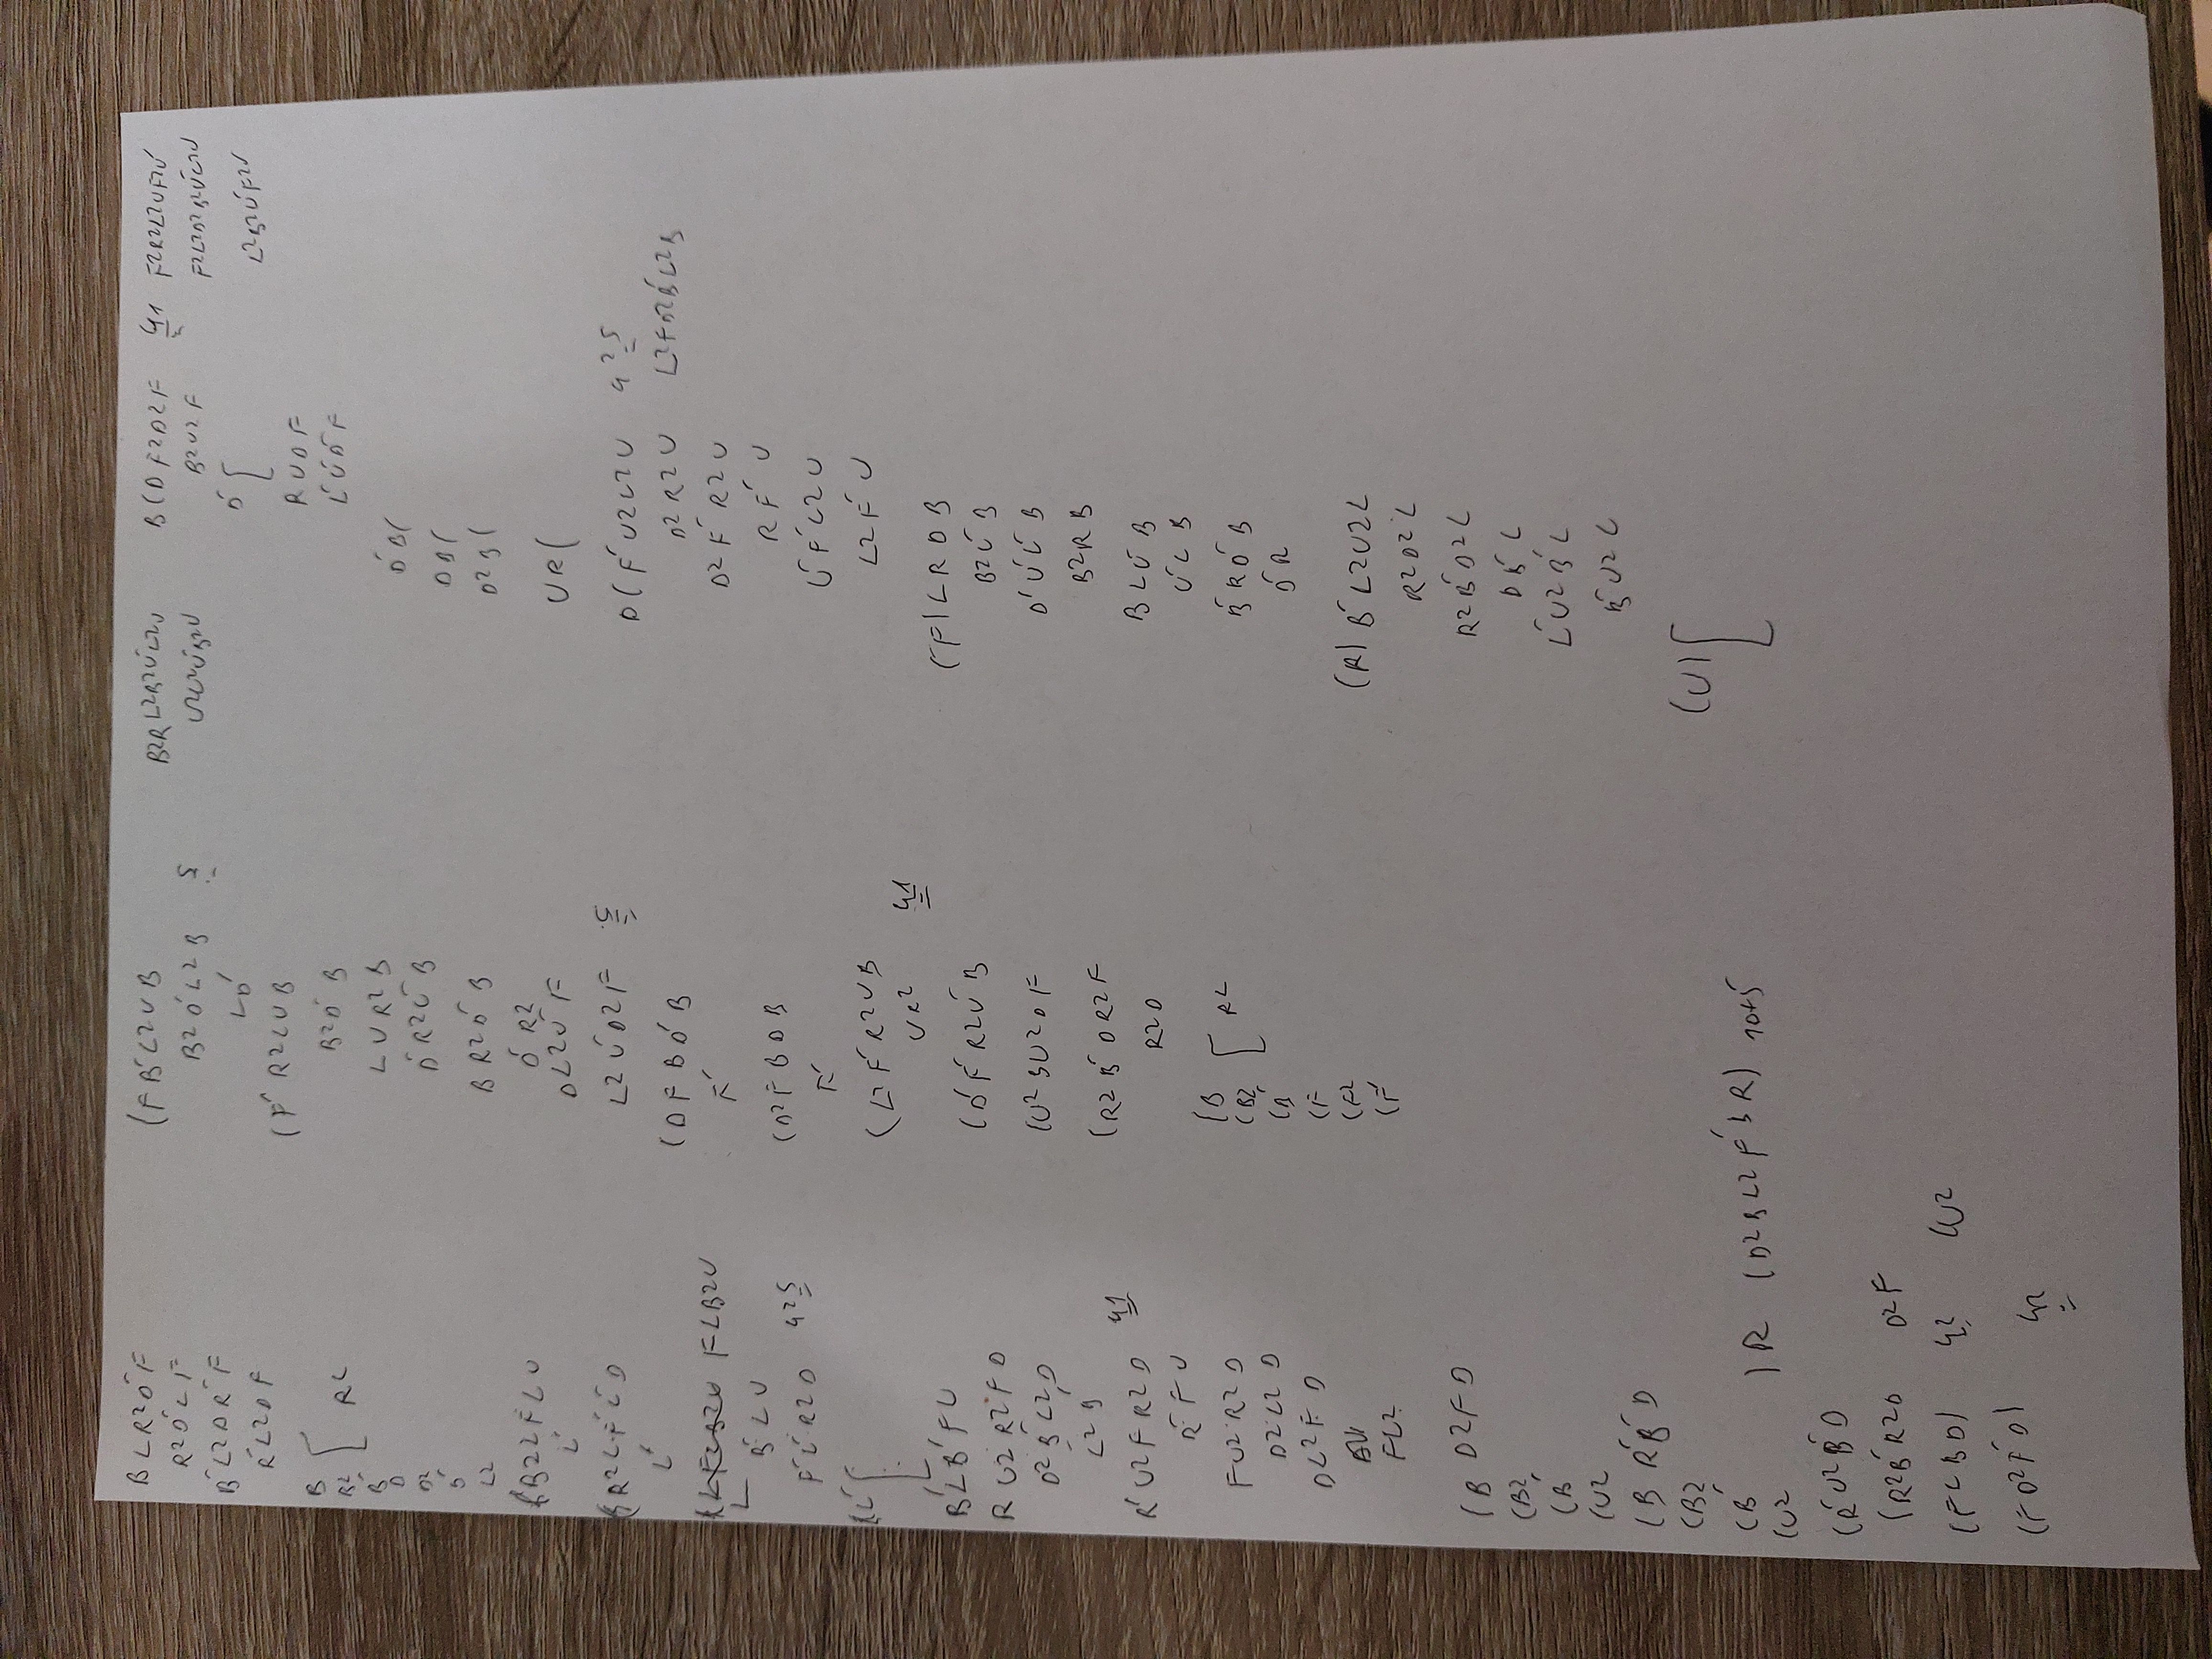 B L R2 D' F
R2 D' L F
B' L2 D R' F
R' L2 D F
B
B2
B'
D
D2
D'
L2
R L
(B B2 L' F L U
L'
(B R2 L' F' L' D
L'
F L B2 U
L B' L U
F' L' R2 D 4 25
(L'
B' L B' F U
R U2 R2 F D
D2 B' L2 D
L2 B
R' U2 F R2 D 41
R' F U
F U2 R2 D
D2 L2 D
D L2 F D
F L2
(B D2 F D
(B2
(B'
(U2
(B R' B' D
(B2
(B'
(U2
) R (D2 B L2 F' B R) 10+5
(R' U2 B' D
(R2 B' R2 D D2 F
(F L B D) 42 (U2
(F D2 F' D) 42
(F B' L2 U B
B2 D' L2 B 5
L D'
(F' R2 L U B
B2 D' B
L U R2 B
D' R2 U' B
B R2 D' B
D' R2
D L2 U' F
L2 U' D2 F 5
(D F B D' B
F'
(D2 F B D B
F'
(L2 F' R2 U B
U R2 41
(D' F' R2 U' B
(U2 B U2 D F
(R2 B' D R2 F
R2 D
(B
(B2
(B'
(F
(F2
(F'
R L
B2 R L2 B2 U' L2 U
B ( D F2 D2 F 41
B2 U2 F
D'
R U D F
L' U' D' F
D' B (
D B (
D2 B (
U R (
D ( F' U2 L2 U 4 25
D2 R2 U L2 F D2 B' L2 B
D2 F' R2 U
R F' U
U' F' L2 U
L2 F' U
(F) L R D B
B2 U' B
D' U' L' B
B2 R B
B L U' B
U' L B
B' R D' B
D' R
(R) B' L2 U2 L
R2 D2 L
R2 B' D2 L
D B' L
L' U2 B' L
B' U2 L
(U)
F2 R2 L2 U F2 U'
F2 L2 D2 B2 U' L2 U
L2 B2 U' F2 U